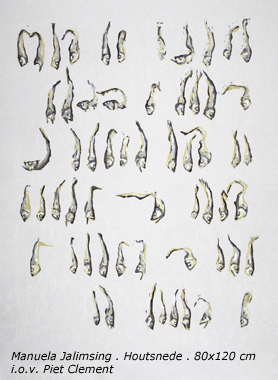 Manuela Jalimsing . Houtsnede . 80x120 cm
i.o.v. Piet Clement